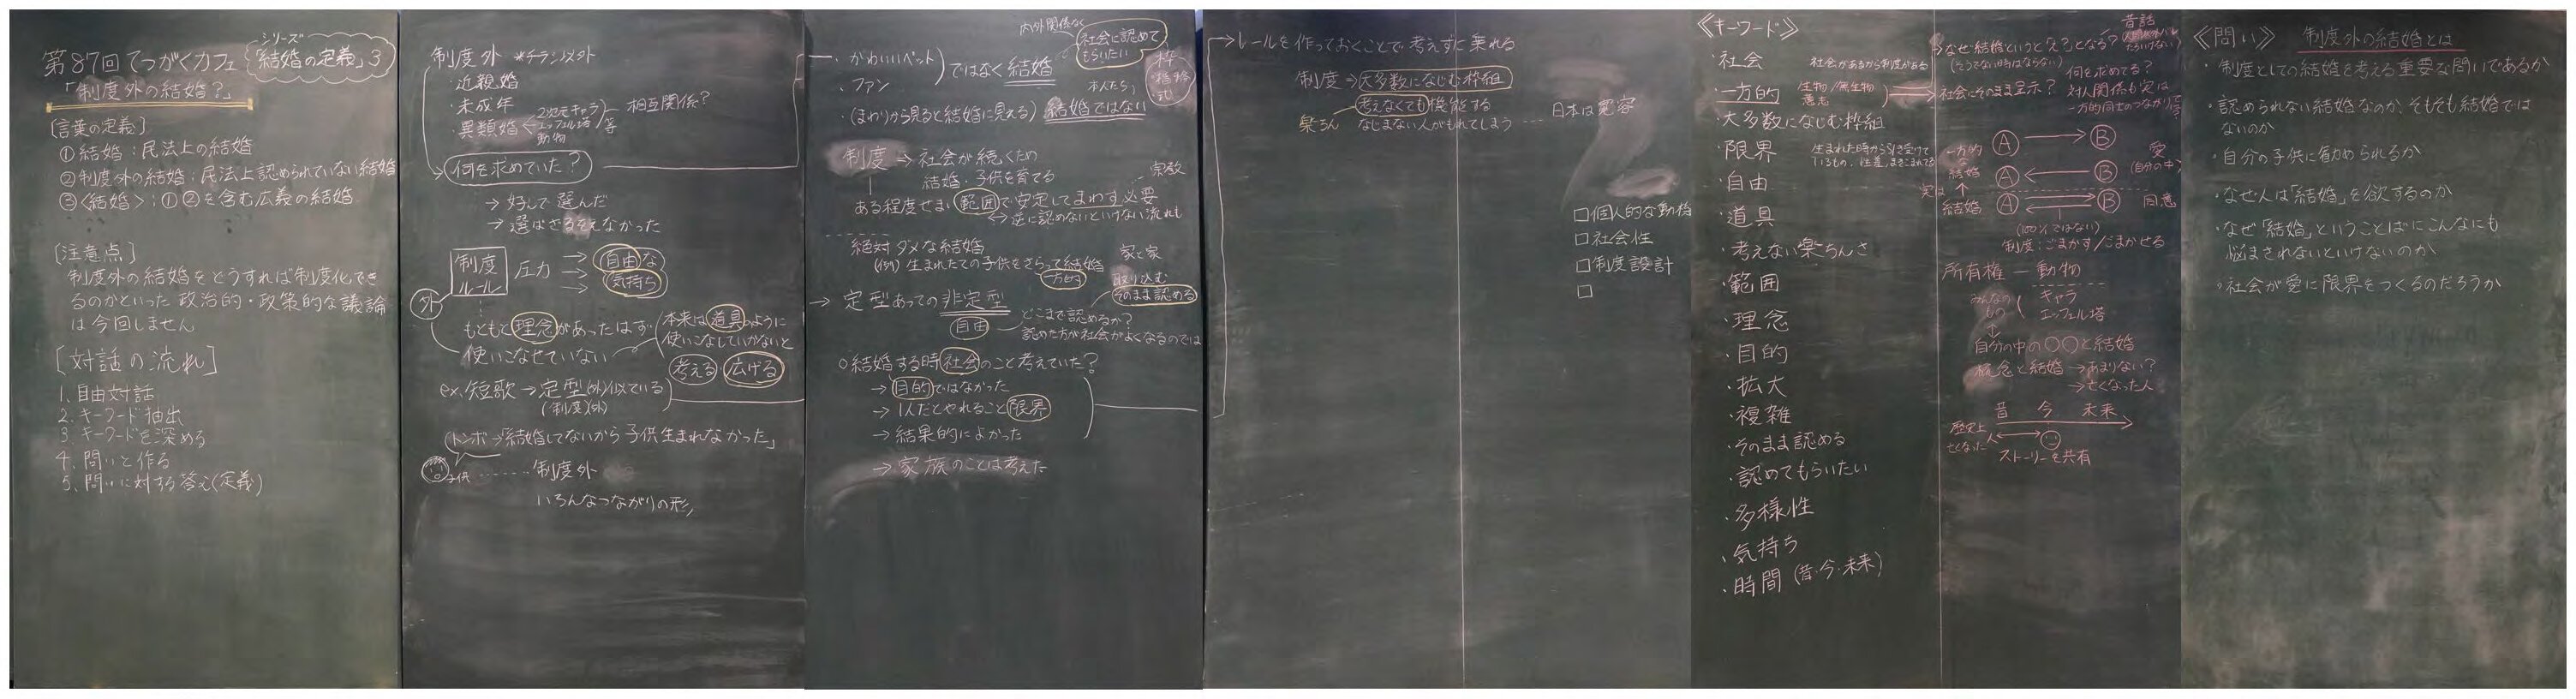 第87回てつがくカフェ
シリーズ
「結婚の定義」3
「制度外の結婚？」
［言葉の定義］
①結婚：民法上の結婚
②制度外の結婚：民法上認められていない結婚
③〈結婚〉：①②を含む広義の結婚
［注意点］
制度外の結婚をどうすれば制度化でき
るのかといった政治的・政策的な議論
は今回しません
［対話の流れ］
1. 自由対話
2. キーワード抽出
3. キーワードを深める
4. 問いを作る
5. 問いに対する答え(定義)
制度外
・近親婚
・未成年
・異類婚
2次元キャラ
エッフェル塔
動物
等
相互関係？
何を求めていた？
→ 好して選んだ
→ 選ばざるをえなかった
制度
ルール
圧力
自由な
気持ち
外
もともと理念があったはず
使いこなせていない
本来は道具のように
使いこなしていかないと
考える 広げる
ex. 短歌→定型(外)似ている
(制度)(外)
トンボ→「結婚してないから子供生まれなかった」
子供 …… 制度外
いろんなつながりの形
・かわいいペット
・ファン
ではなく結婚
内外関係なく
社会に認めて
もらいたい
本人たち
枠
・(まわりから見ると結婚に見える) 結婚ではない
制度 → 社会が続くため
結婚・子供を育てる
宗教
ある程度せまい範囲で安定してまわす必要
↔ 逆に認めないといけない流れも
絶対ダメな結婚
(例) 生まれたての子供をさらって結婚
一方的
家と家
取り込む
そのまま認める
→ 定型あっての非定型
自由
どこまで認めるか？
認めた方が社会がよくなるのでは
○結婚する時社会のこと考えていた？
→ 目的ではなかった
→ 1人だとやれること限界
→ 結果的によかった
→ 家族のことは考えた
→レールを作っておくことで考えずに乗れる
制度→大多数になじむ枠組
考えなくても機能する
楽ちん なじまない人がもれてしまう …… 日本は寛容
□個人的な動機
□社会性
□制度設計
□
《キーワード》
・社会 社会があるから制度がある
・一方的 生物/無生物
意志
・大多数になじむ枠組
・限界
・自由
・道具
・考えない楽ちんさ
・範囲
・理念
・目的
・拡大
・複雑
・そのまま認める
・認めてもらいたい
・多様性
・気持ち
・時間 (昔・今・未来)
昔話
なぜ結婚というと「え？」となる？
社会にそのまま呈示？
何を求めてる？
対人関係も実は
一方的同士のつながり
A → B
一方的
な
結婚
A ← B
愛
(自分の中)
実は
結婚
A B
同意
(100%ではない)
制度：ごまかす/ごまかせる
所有権 ー 動物
みんなの
もの
キャラ
エッフェル塔
自分の中の○○と結婚
概念と結婚 →あまりない？
→亡くなった人
昔 今 未来
歴史上
亡くなった人
ストーリーを共有
《問い》 制度外の結婚とは
・制度としての結婚を考える重要な問いであるか
・認められない結婚なのか、そもそも結婚では
ないのか
・自分の子供に勧められるか
・なぜ人は「結婚」を欲するのか
・なぜ「結婚」ということばにこんなにも
悩まされないといけないのか
・社会が愛に限界をつくるのだろうか